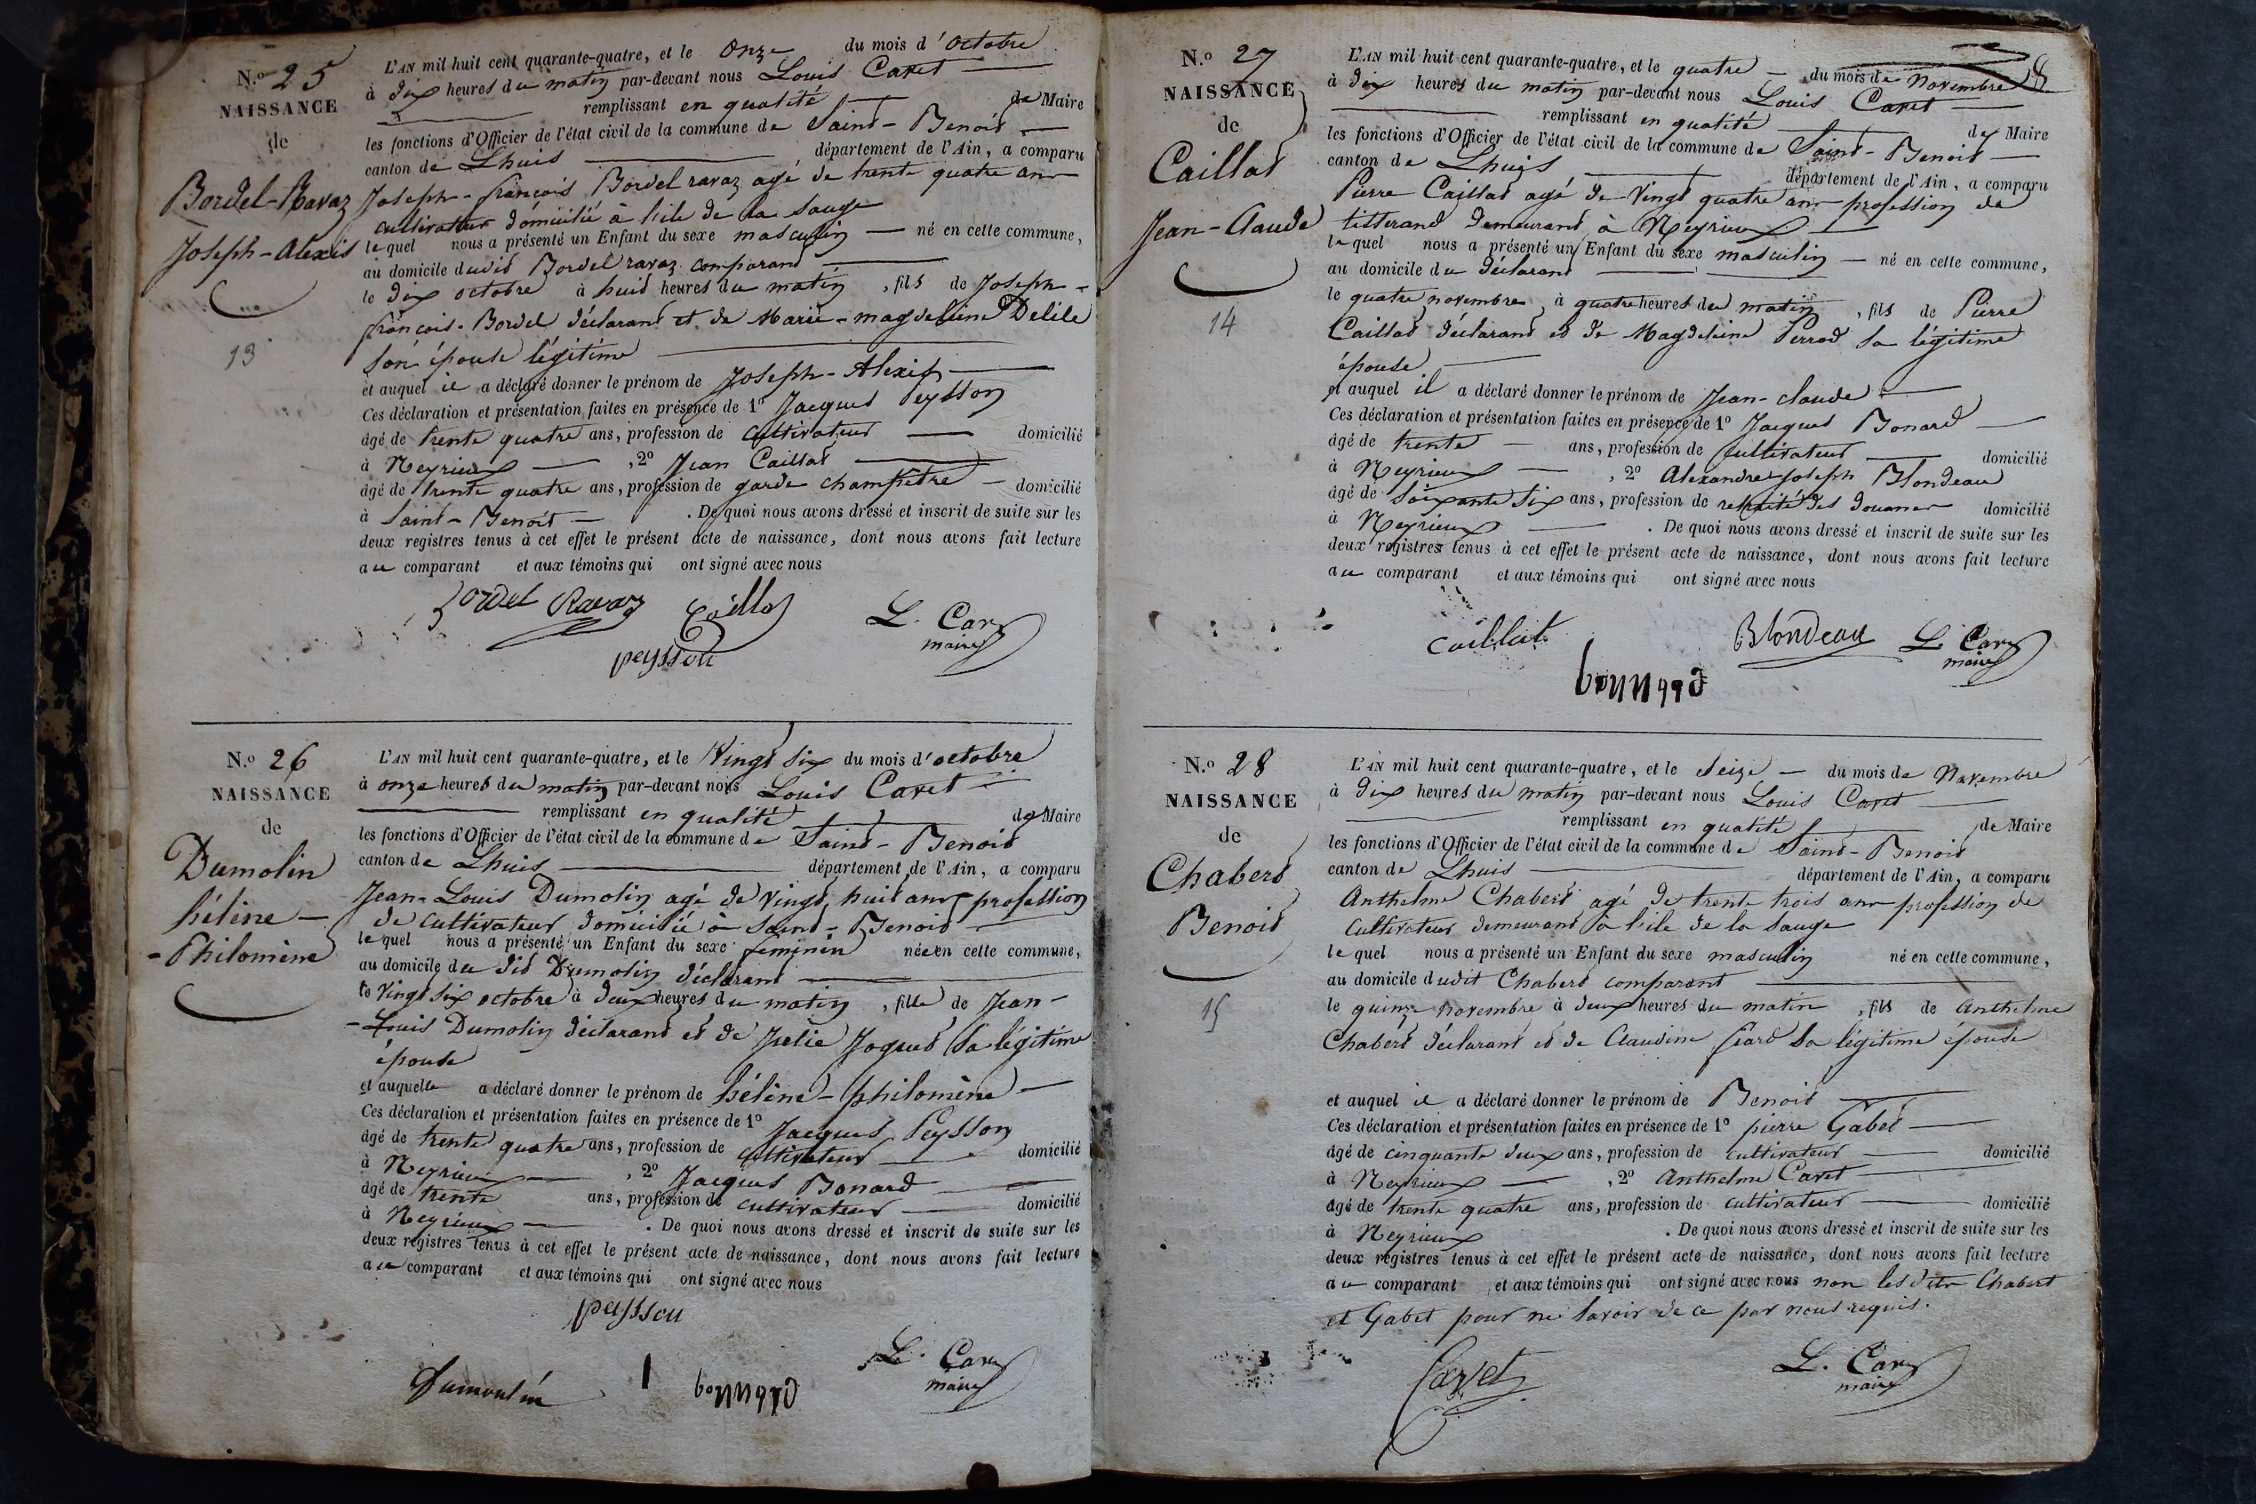 N.o 25
NAISSANCE
de
Bordel-Ravaz
Joseph-Alexis
13
L'AN mil huit cent quarante-quatre, et le onze du mois d'octobre
à dix heures du matin par-devant nous Louis Caret
remplissant en qualité de Maire
les fonctions d'Officier de l'état civil de la commune de Saint-Benoit
canton de Lhuis département de l'Ain, a comparu
Joseph-françois Bordel ravaz agé de trente quatre ans
cultivateur domicilié à l'ile de la Sauge
lequel nous a présenté un Enfant du sexe masculin né en cette commune,
au domicile dudit Bordel ravaz comparant
le dix octobre à huit heures du matin, fils de Joseph-
françois-Bordel déclarant et de Marie-magdeleine Delile
son épouse légitime
et auquel il a déclaré donner le prénom de Joseph-Alexis
Ces déclaration et présentation faites en présence de 1o Jacques Peysson
âgé de trente quatre ans, profession de cultivateur domicilié
à Neyrieux, 2o Jean Caillat
âgé de trente quatre ans, profession de garde champêtre domicilié
à Saint-Benoit. De quoi nous avons dressé et inscrit de suite sur les
deux registres tenus à cet effet le présent acte de naissance, dont nous avons fait lecture
au comparant et aux témoins qui ont signé avec nous
Bordel Ravaz Caillat L. Caret
maire
peysson
N.o 26
NAISSANCE
de
Dumolin
hélène-
-Philomène
L'AN mil huit cent quarante-quatre, et le Vingt six du mois d'octobre
à onze heures du matin par-devant nous Louis Caret
remplissant en qualité de Maire
les fonctions d'Officier de l'état civil de la commune de Saint-Benoit
canton de Lhuis département de l'Ain, a comparu
Jean-Louis Dumolin agé de Vingt huit ans profession
de cultivateur domicilié à Saint-Benoit
lequel nous a présenté un Enfant du sexe féminin née en cette commune,
au domicile du dit Dumolin déclarant
le Vingt six octobre à deux heures du matin, fille de Jean-
-Louis Dumolin déclarant et de Julie Joques sa légitime
épouse
et auquelle a déclaré donner le prénom de hélène-philomène
Ces déclaration et présentation faites en présence de 1o Jacques Peysson
âgé de trente quatre ans, profession de cultivateur domicilié
à Neyrieux, 2o Jacques Bonard
âgé de trente ans, profession de cultivateur domicilié
à Neyrieux. De quoi nous avons dressé et inscrit de suite sur les
deux registres tenus à cet effet le présent acte de naissance, dont nous avons fait lecture
au comparant et aux témoins qui ont signé avec nous
peysson
Dumoulin bonnard L. Caret
maire
8
N.o 27
NAISSANCE
de
Caillat
Jean-Claude
14
L'AN mil huit cent quarante-quatre, et le quatre du mois de Novembre
à dix heures du matin par-devant nous Louis Caret
remplissant en qualité de Maire
les fonctions d'Officier de l'état civil de la commune de Saint-Benoit
canton de Lhuis département de l'Ain, a comparu
Pierre Caillat agé de Vingt quatre ans profession de
titterand demeurant à Neyrieux
lequel nous a présenté un Enfant du sexe masculin né en cette commune,
au domicile du déclarant
le quatre novembre, à quatre heures du matin, fils de Pierre
Caillat déclarant et de Magdeleine Perrod sa légitime
épouse
et auquel il a déclaré donner le prénom de Jean-claude
Ces déclaration et présentation faites en présence de 1o Jacques Bonard
âgé de trente ans, profession de Cultivateur domicilié
à Neyrieux, 2o Alexandre joseph Blondeau
âgé de Soixante Six ans, profession de retraité des douanes domicilié
à Neyrieux. De quoi nous avons dressé et inscrit de suite sur les
deux registres tenus à cet effet le présent acte de naissance, dont nous avons fait lecture
au comparant et aux témoins qui ont signé avec nous
Caillat Blondeau L. Caret
maire
bonnard
N.o 28
NAISSANCE
de
Chabert
Benoit
15
L'AN mil huit cent quarante-quatre, et le Seize du mois de Novembre
à dix heures du matin par-devant nous Louis Caret
remplissant en qualité de Maire
les fonctions d'Officier de l'état civil de la commune de Saint-Benoit
canton de Lhuis département de l'Ain, a comparu
Anthelme Chabert agé de trente trois ans profession de
Cultivateur demeurant à l'ile de la Sauge
lequel nous a présenté un Enfant du sexe masculin né en cette commune,
au domicile dudit Chabert comparant
le quinze novembre à deux heures du matin, fils de Anthelme
Chabert déclarant et de Claudine sa légitime épouse
et auquel il a déclaré donner le prénom de Benoit
Ces déclaration et présentation faites en présence de 1o pierre Gabet
âgé de cinquante deux ans, profession de cultivateur domicilié
à Neyrieux, 2o Anthelme Caret
âgé de trente quatre ans, profession de cultivateur domicilié
à Neyrieux. De quoi nous avons dressé et inscrit de suite sur les
deux registres tenus à cet effet le présent acte de naissance, dont nous avons fait lecture
au comparant et aux témoins qui ont signé avec nous non les dits Chabert
et Gabet pour ne savoir de ce par nous requis.
Carvet L. Caret
maire